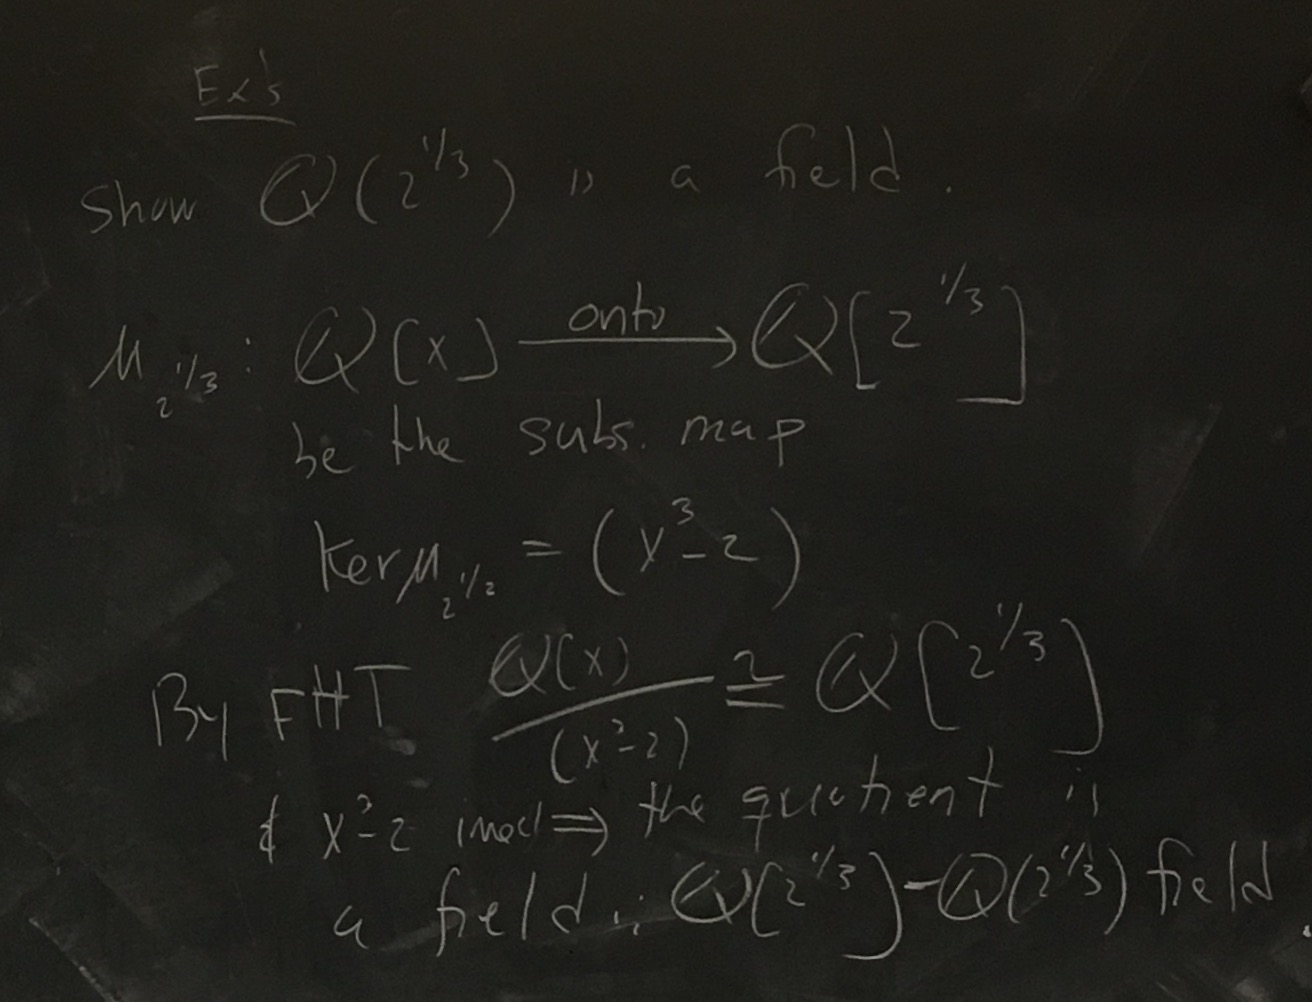 Ex's
Show ℚ(2^{1/3}) is a field.
μ_{2^{1/3}} : ℚ[x] \xrightarrow{onto} ℚ[2^{1/3}]
be the subs. map
ker μ_{2^{1/2}} = (x^3-2)
By FHT ℚ[x]/(x^3-2) ≅ ℚ[2^{1/3}]
& x^3-2 irred ⇒ the quotient is
a field ∴ ℚ[2^{1/3}] = ℚ(2^{1/3}) field.